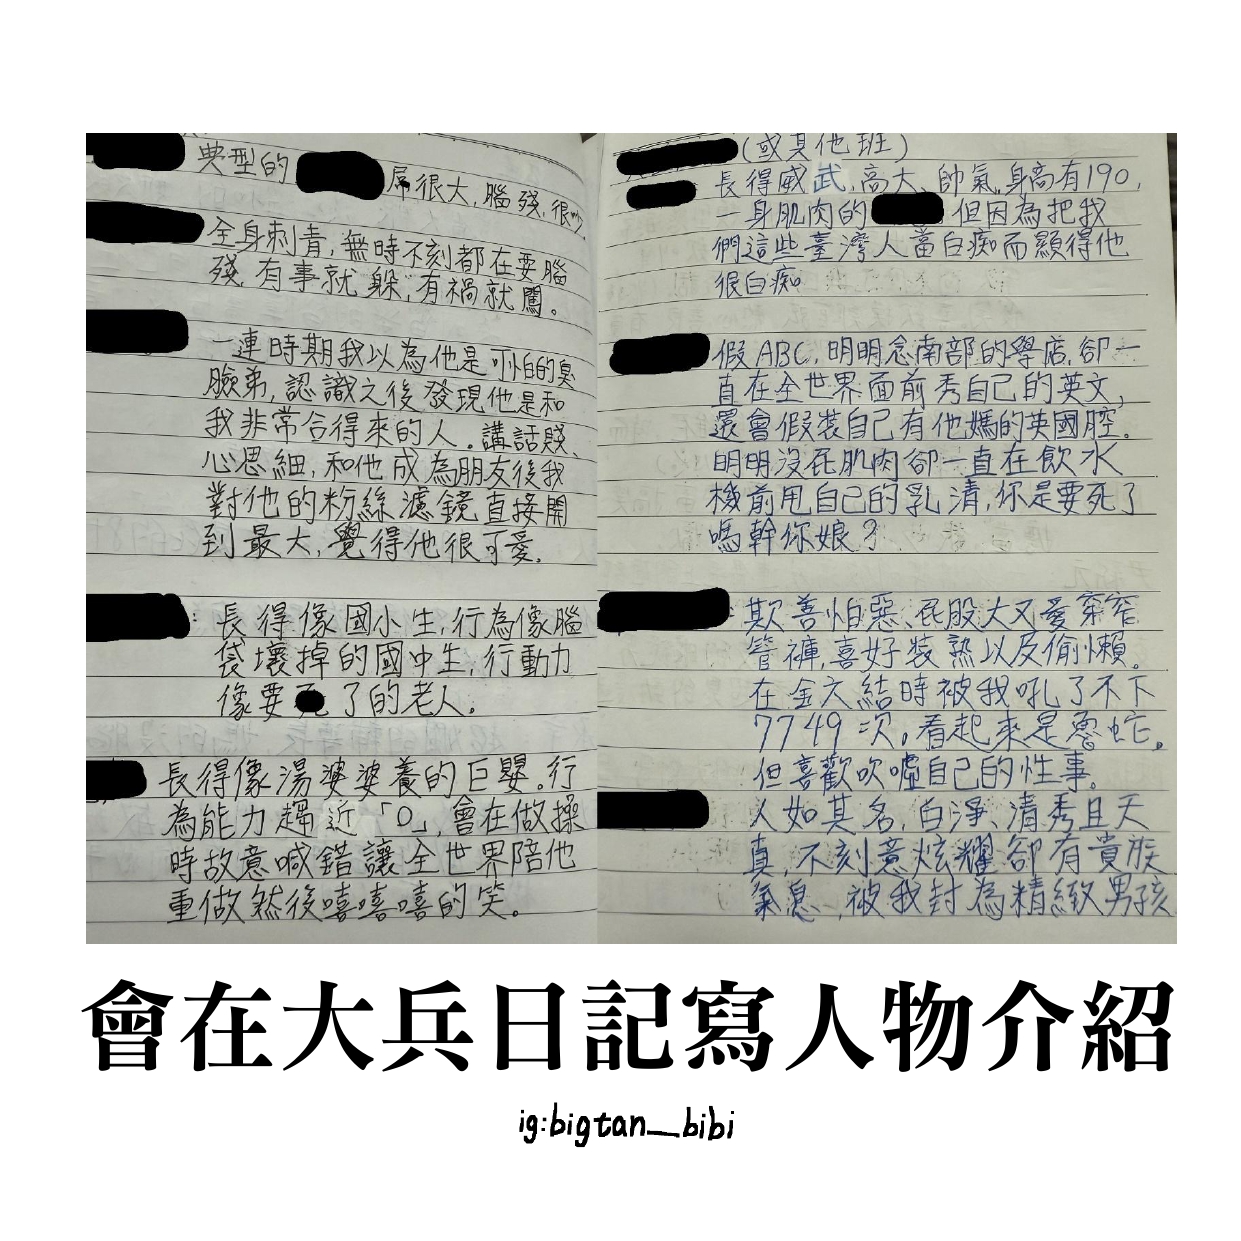 典型的 屌很大,腦殘,很吵
全身刺青,無時不刻都在耍腦
殘,有事就躲,有禍就闖。
一連時期我以為他是可怕的臭
臉弟,認識之後發現他是和
我非常合得來的人。講話賤、
心思細,和他成為朋友後我
對他的粉絲濾鏡直接開
到最大,覺得他很可愛。
:長得像國小生,行為像腦
袋壞掉的國中生,行動力
像要死了的老人。
長得像湯婆婆養的巨嬰。行
為能力趨近「0」,會在做操
時故意喊錯讓全世界陪他
重做然後嘻嘻嘻的笑。
(或其他班)
長得威武、高大、帥氣,身高有190,
一身肌肉的 但因為把我
們這些臺灣人當白痴而顯得他
很白痴
假ABC,明明念南部的學店,卻一
直在全世界面前秀自己的英文,
還會假裝自己有他媽的英國腔。
明明沒屁肌肉卻一直在飲水
機前甩自己的乳溝,你是要死了
嗎幹你娘?
:欺善怕惡、屁股大又愛穿窄
管褲,喜好裝熟以及偷懶。
在金六結時被我吼了不下
7749次。看起來是魯蛇。
但喜歡吹噓自己的性事。
人如其名,白淨、清秀且天
真,不刻意炫耀卻有貴族
氣息,被我封為精緻男孩
會在大兵日記寫人物介紹
ig:bigtan__bibi